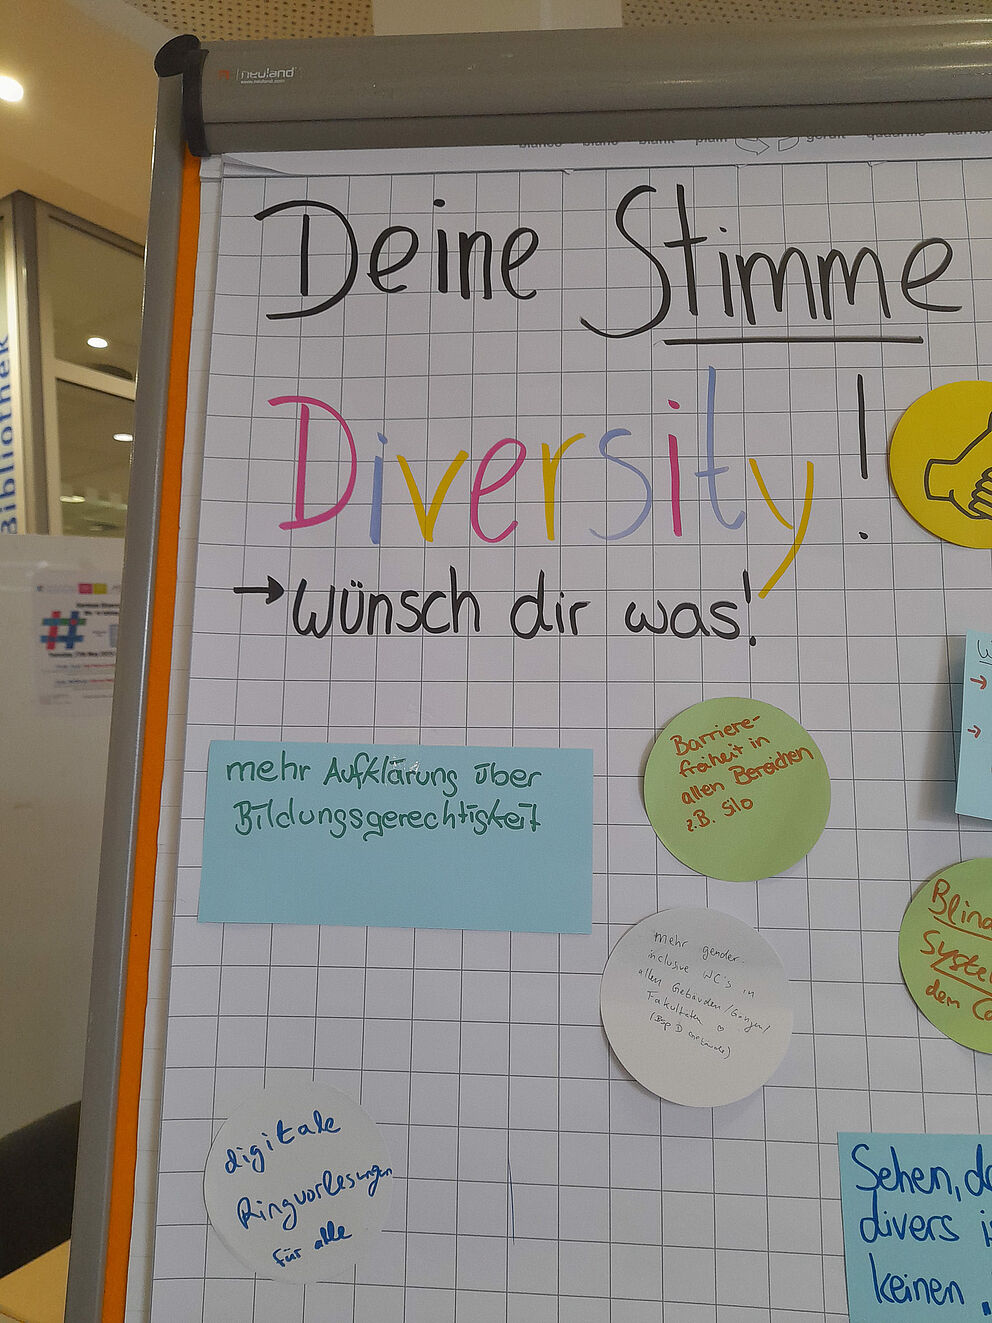 neuland
www.neuland.com
Deine Stimme
Diversity!
→ Wünsch dir was!
Bibliothek
#
mehr Aufklärung über
Bildungsgerechtigkeit
Barriere-
freiheit in
allen Bereichen
z.B. Silo
mehr gender-
inclusive WC's in
allen Gebäuden/Gängen/
Fakultäten ♡
(Bsp D Gebäude)
Blin
Syste
dem C
digitale
Ringvorlesungen
für alle
Sehen, da
divers i
keinen „